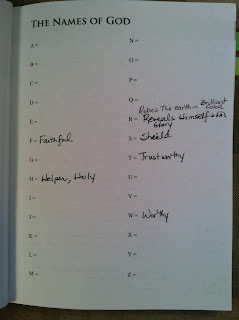 THE NAMES OF GOD
A =
B =
C =
D =
E =
F = Faithful
G =
H = Helper, Holy
I =
J =
K =
L =
M =
N =
O =
P =
Q =
Robes The earth in Brilliant Color
R = Reveals Himself & His
Glory
S = Shield
T = Trustworthy
U =
V =
W = Worthy
X =
Y =
Z =